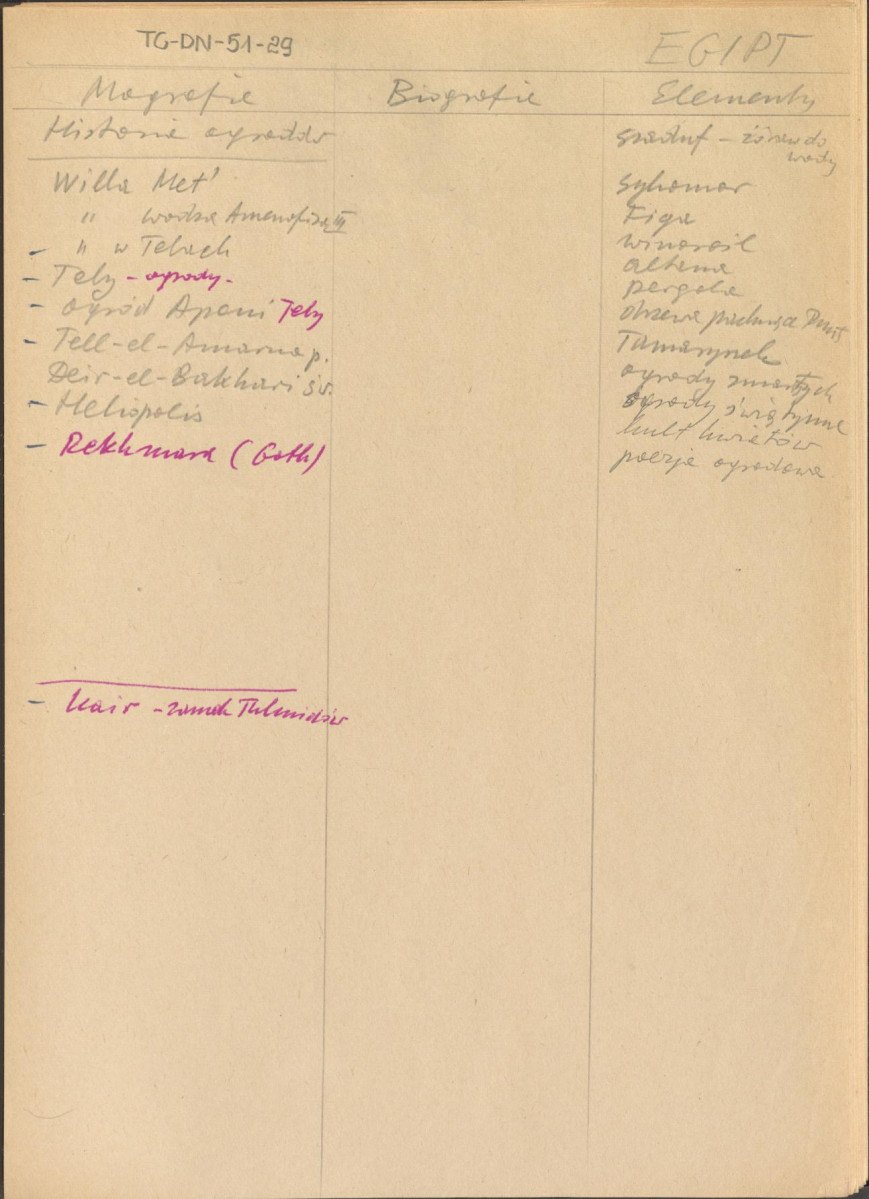 TG-DN-51-29
EGIPT
Mografie
Biografie
Elementy
Historia ogrodów
Willa Met'
" wodza Amenofisa III
" w Tebach
Teby - ogrody -
ogród Apoui Teby
Tell-el-Amarna p.
Deir-el-Bakhari św.
Heliopolis
Rekhmara (Goth)
Kair - zamek
szaduf - żóraw do
wody
sykomor
Figa
winorośl
altana
pergola
drzewa pachnące
Tamarynek
ogrody zmarłych
ogrody świątynne
kult kwiatów
poezja ogrodowa